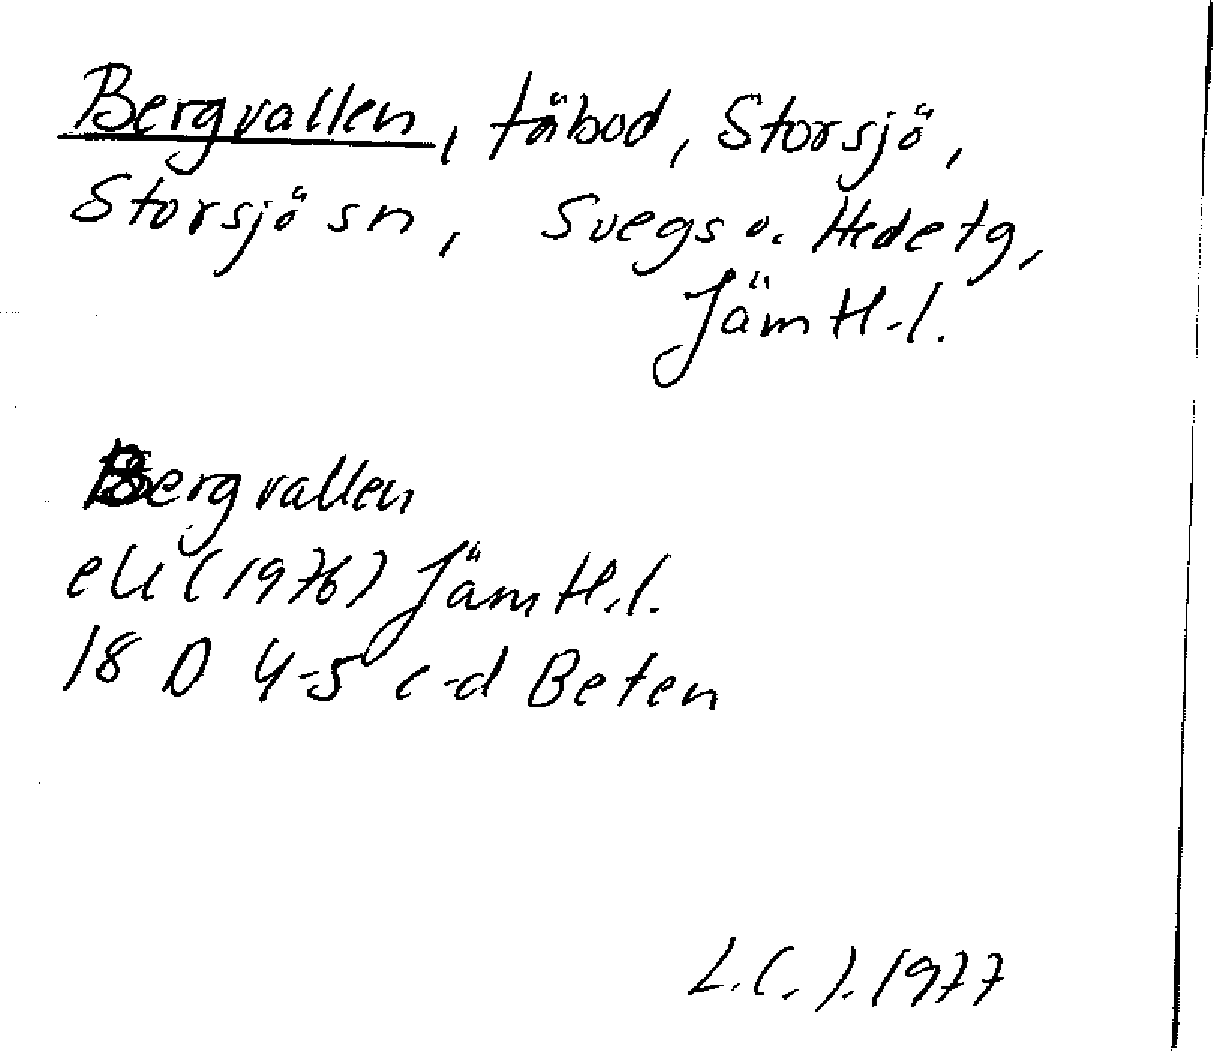 Bergvallen, fäbod, Storsjö,
Storsjö sn, Svegs o. Hede tg,
Jämtl. l.
Bergvallen
ek (1976) Jämtl. l.
18 D 4-5 c-d Beten
1977